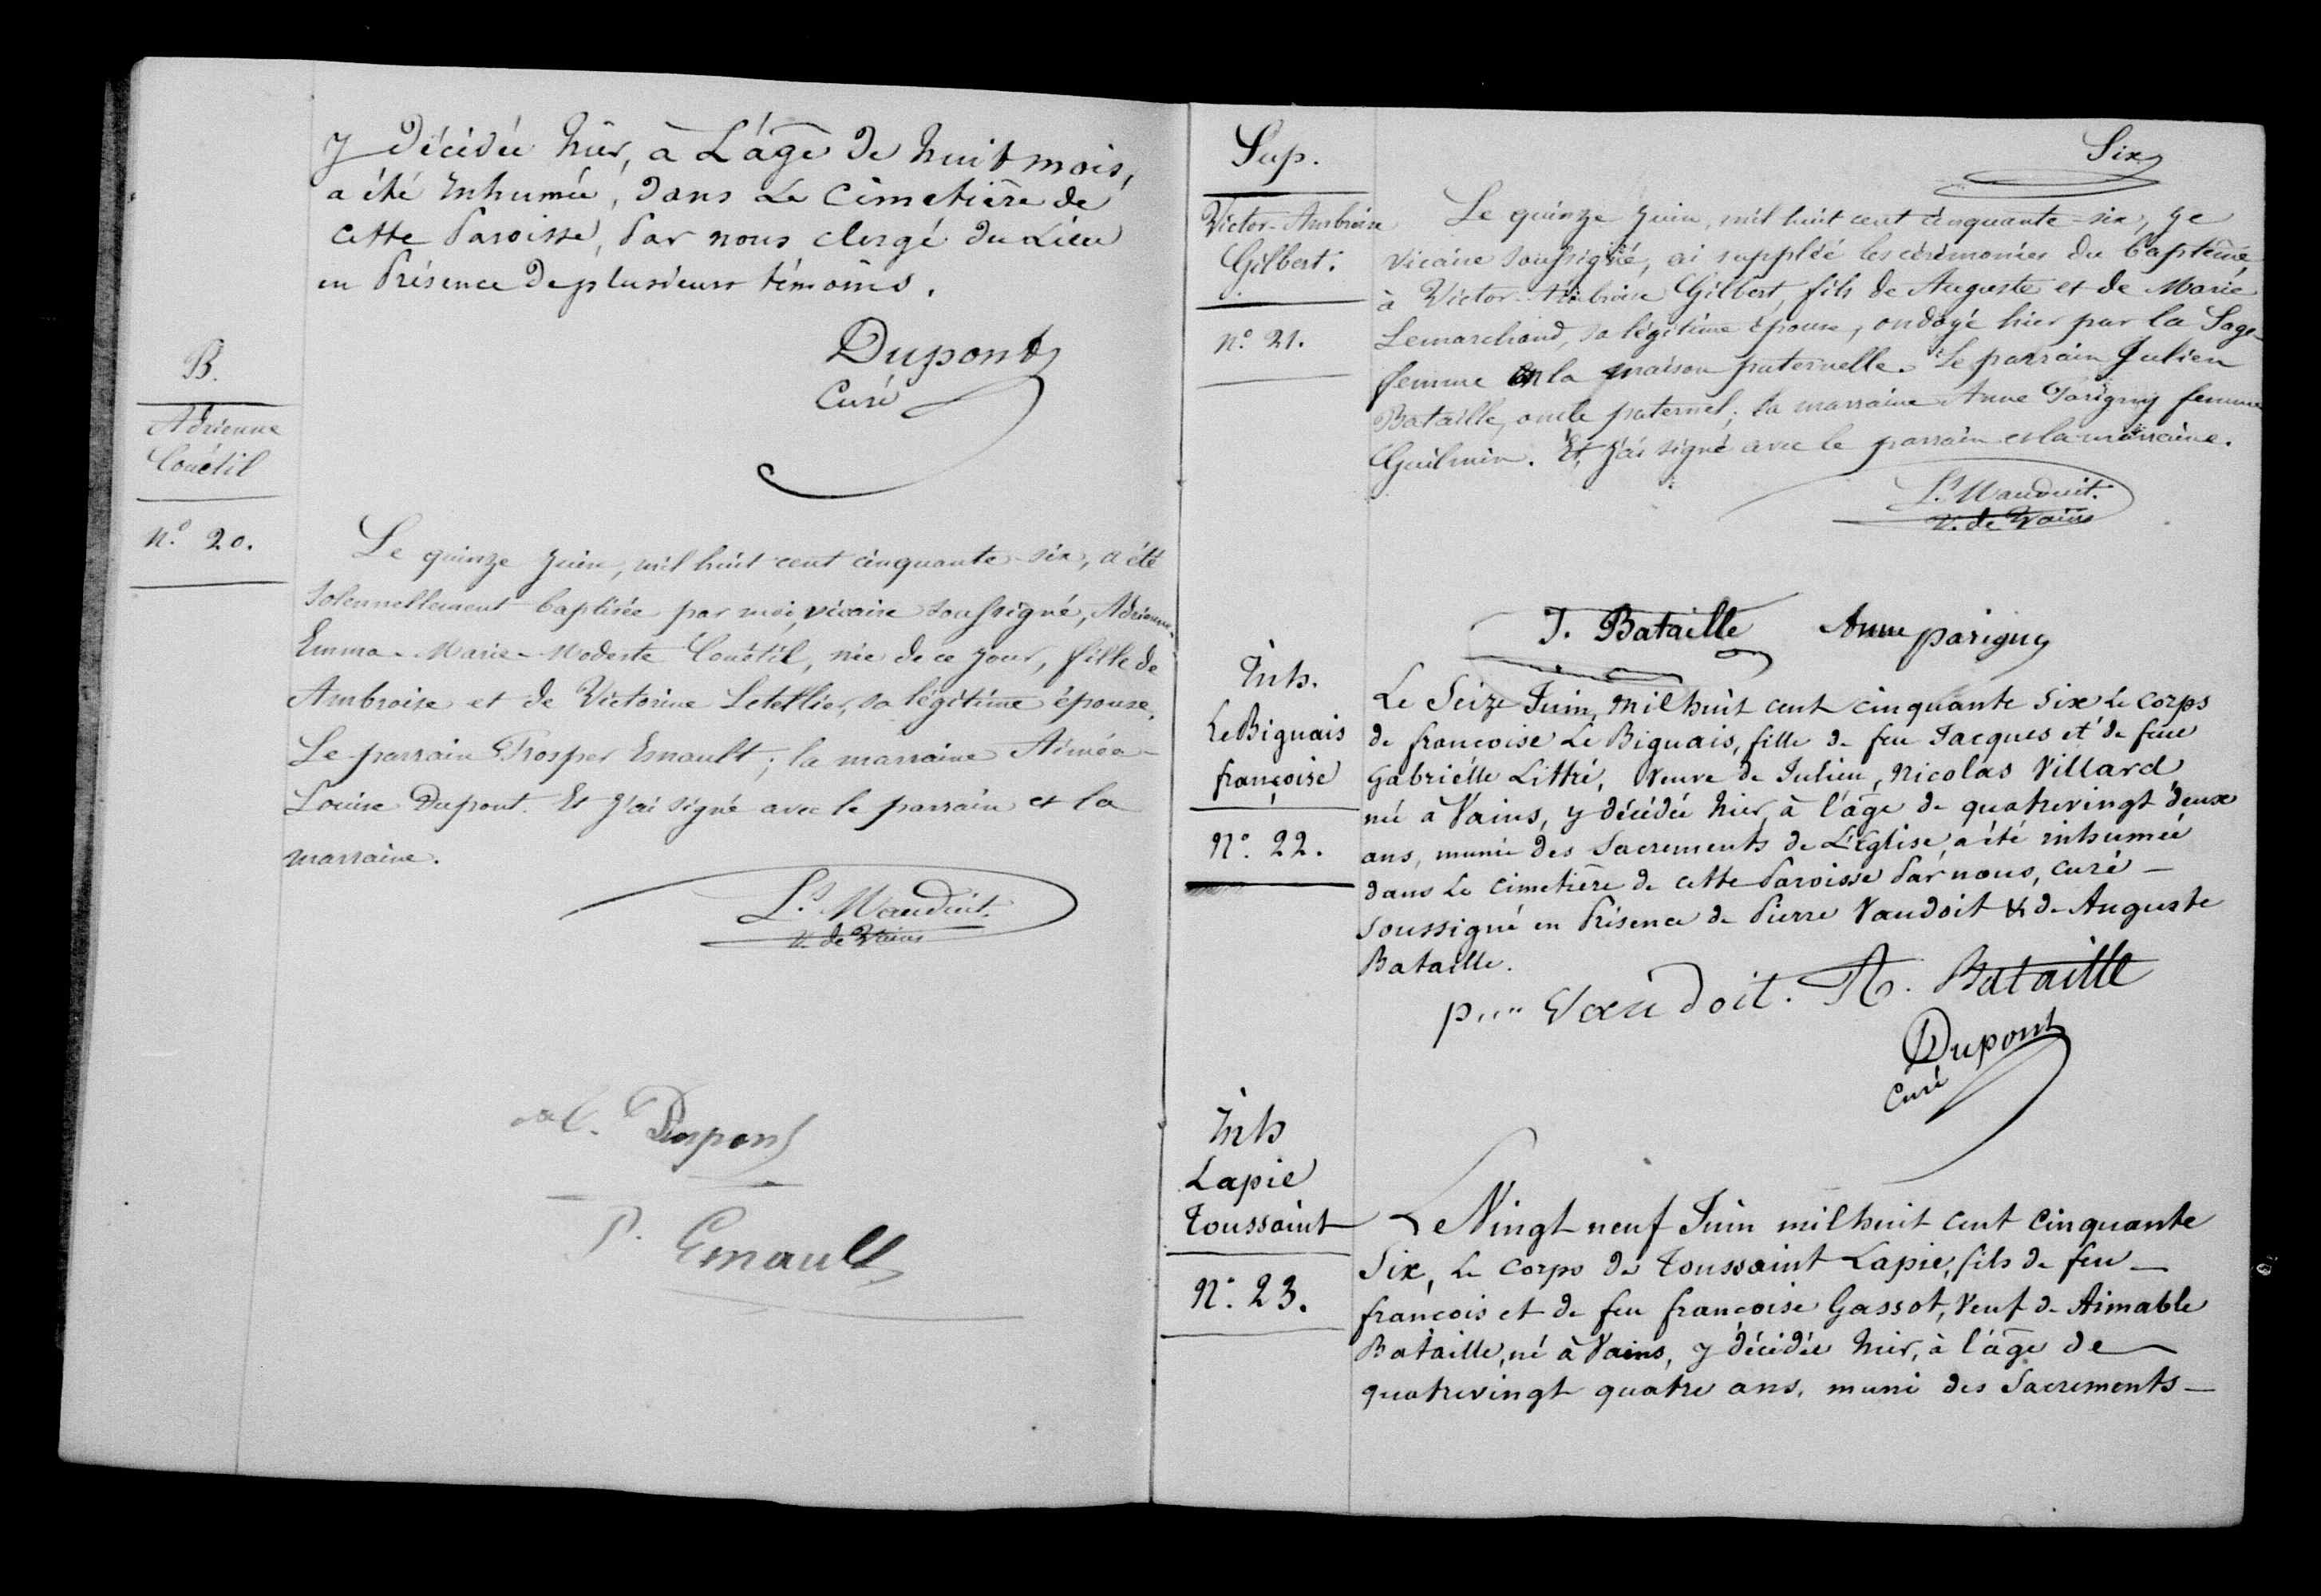 y décédée hier, à L'âge de huit mois,
a été inhumée, dans Le Cimetière de
cette Paroisse, Par nous clergé du Lieu
en Présence de plusieurs témoins.
Dupont
Curé
B.
Adrienne
Couétil
N.º 20.
Le quinze juin, mil huit cent cinquante-six, a été
solennellement baptisée par moi, vicaire soussigné, Adrienne-
Emma-Marie-Modeste Couétil, née de ce jour, fille de
Ambroise et de Victorine Letellier, sa légitime épouse.
Le parrain Prosper Esnault; la marraine Aimée-
Louise Dupont. Et j'ai signé avec le parrain et la
marraine.
L.s Mauduit.
V. de Vains
Dupont
P. Esnault
Six
Sup.
Victor-Ambroise
Gilbert.
N.º 21.
Le quinze juin, mil huit cent cinquante-six, je
vicaire soussigné, ai suppléé les cérémonies du baptême
à Victor-Ambroise Gilbert, fils de Auguste et de Marie
Lemarchand, sa légitime épouse, ondoyé hier par la Sage-
femme en la maison paternelle. Le parrain Julien
Bataille, oncle paternel; la marraine Anne Parigny femme
Guilmin. Et j'ai signé avec le parrain et la marraine.
L.s Mauduit.
V. de Vains
J. Bataille Anne parigny
Inh.
Le Biguais
françoise
N.º 22.
Le Seize Juin, mil huit cent cinquante Six Le corps
de françoise Le Biguais, fille de feu Jacques et de feue
Gabriélle Littré, Veuve de Julien, Nicolas Villard
née à Vains, y décédée hier, à l'âge de quatrevingt deux
ans, munie des Sacrements de L'église, a été inhumée
dans Le cimetière de cette Paroisse Par nous, curé -
soussigné en Présence de Pierre Vaudoit & de Auguste
Bataille.
Vaudoit. A. Bataille
Dupont
Curé
Inh
Lapie
Toussaint
N.º 23.
Le Vingt neuf Juin mil huit cent cinquante
Six, Le corps de Toussaint Lapie, fils de feu -
françois et de feu françoise Gassot, Veuf de Aimable
Bataille, né à Vains, y décédée hier, à l'âge de
quatrevingt quatre ans, muni des Sacrements -